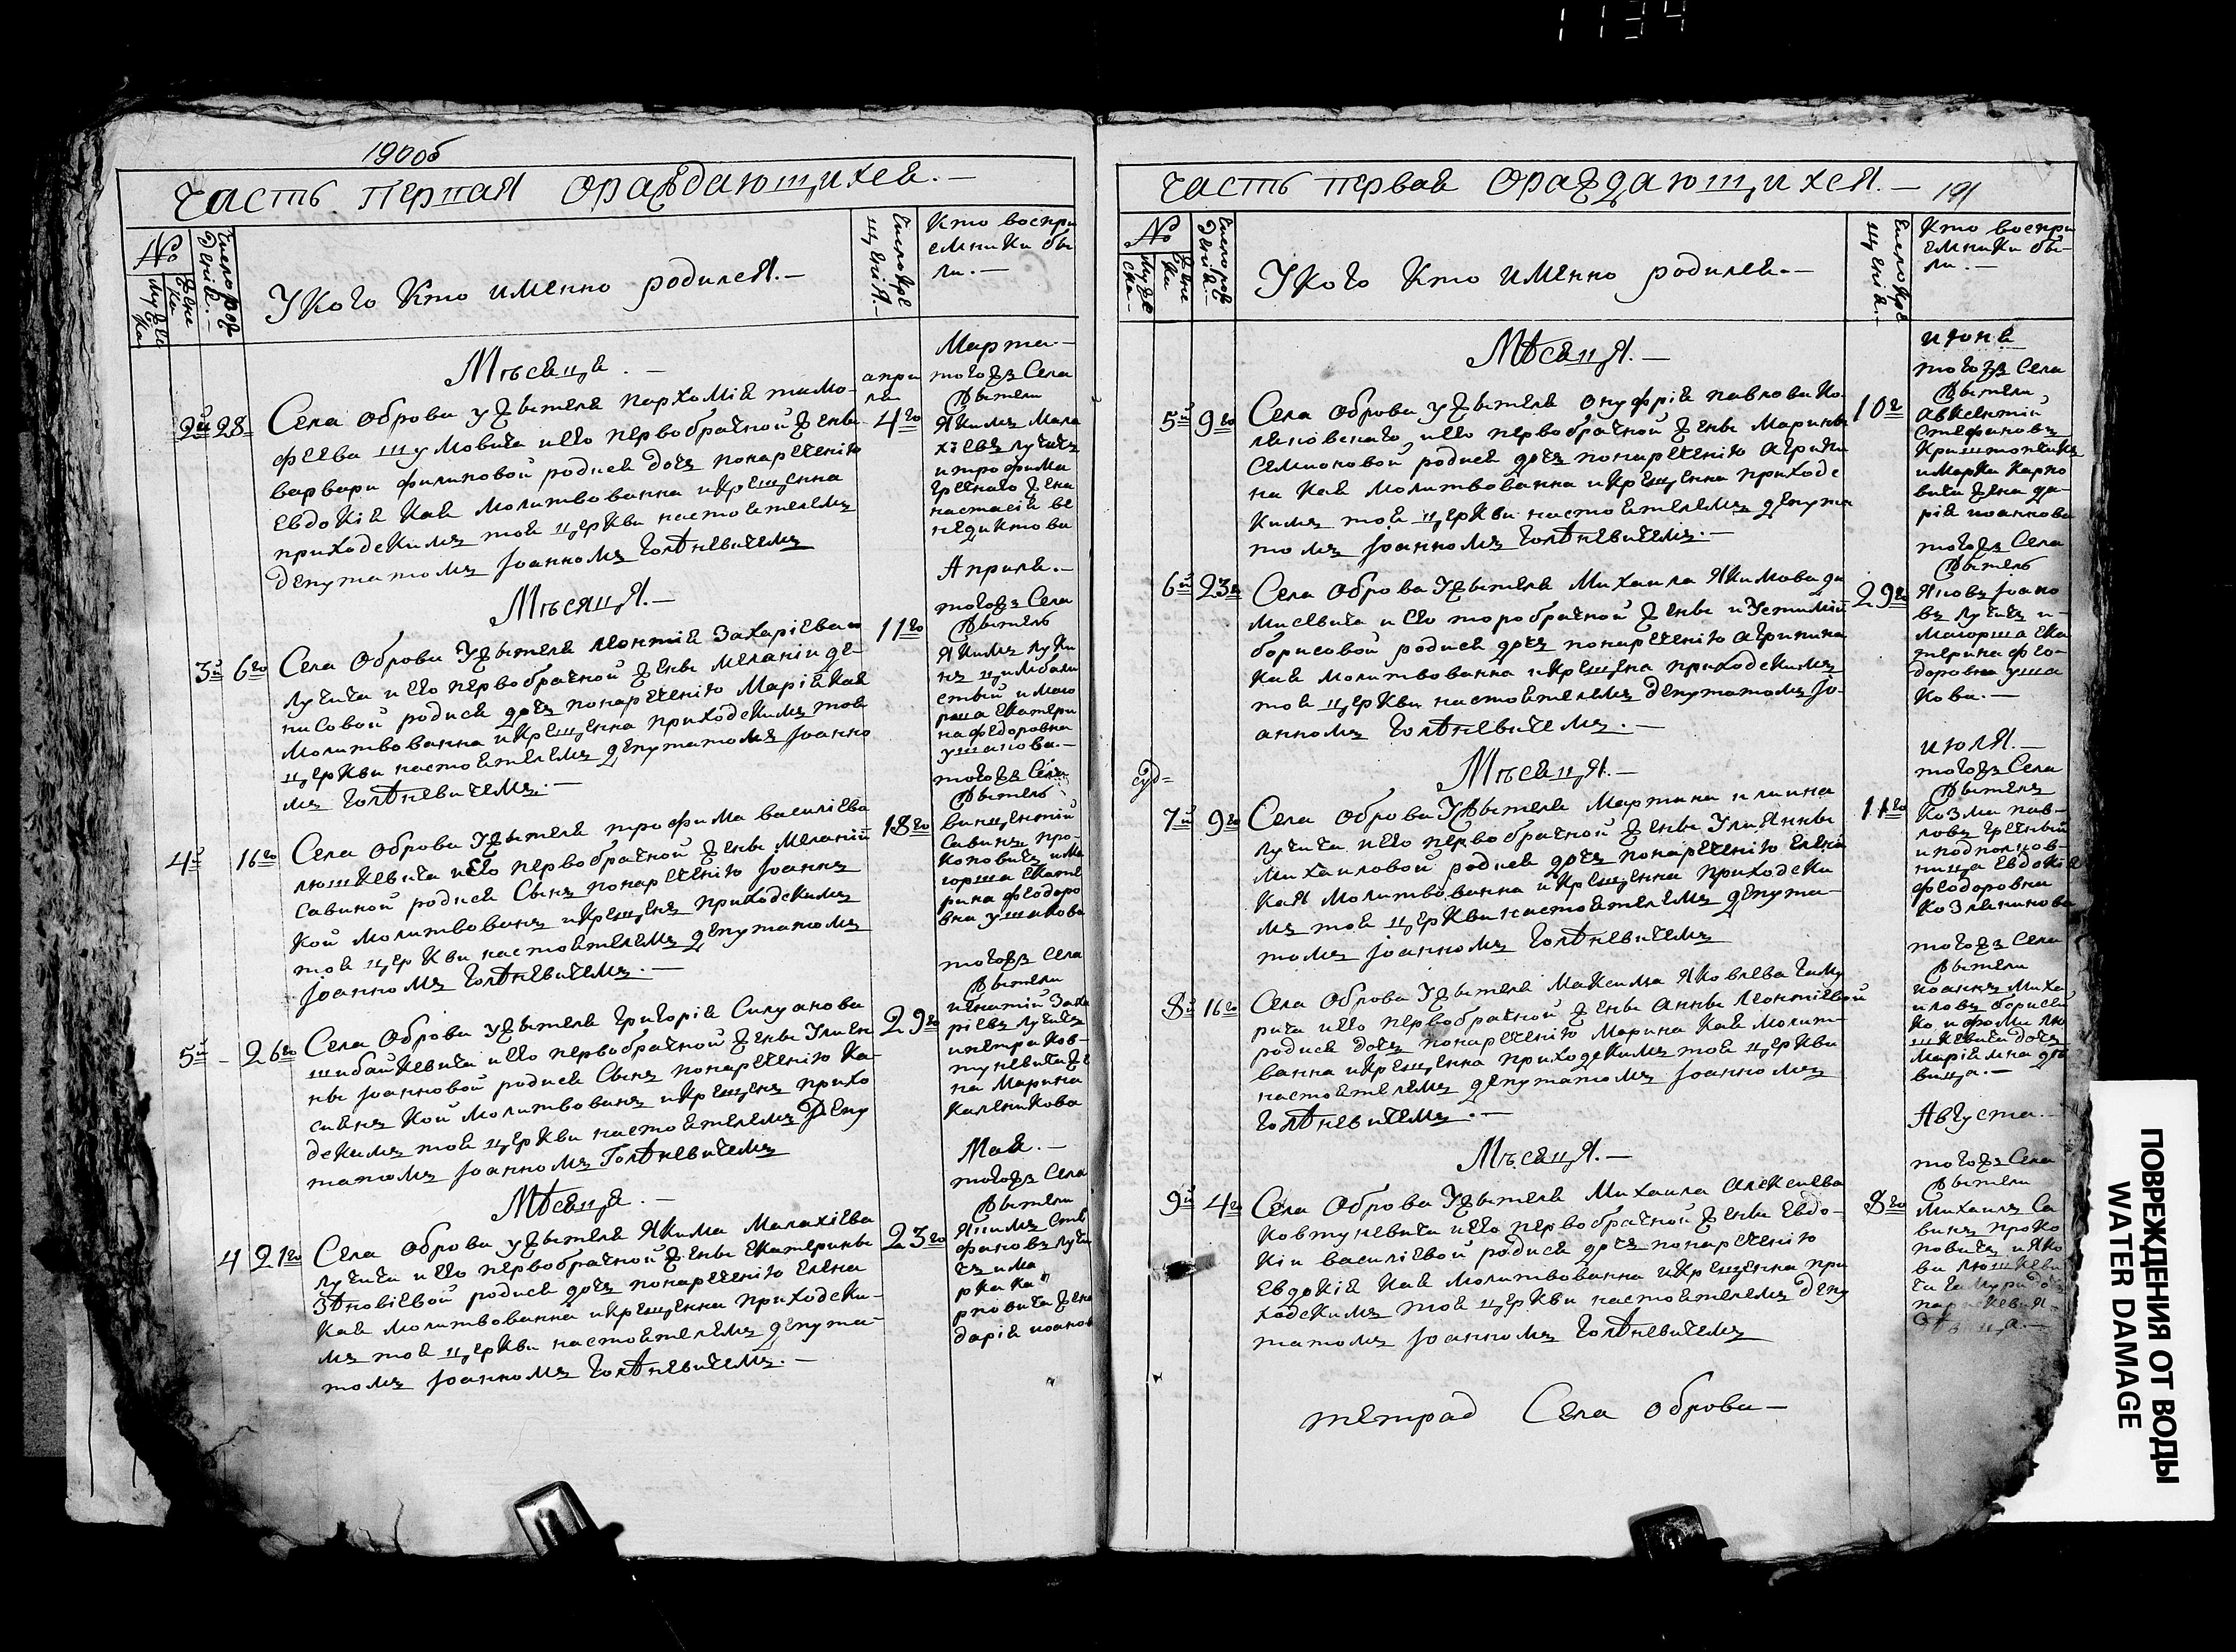 1134
190об
Часть Первая Ораждающихся. —
№
Мужеска
Женска
Число рождения. —
У Кого Кто именно родился. —
Число крещения. —
Кто восприемники были. —
Мѣсяца. —
Марта. —
2й 28
Села Оброва у жытеля Пархомія тимо-
феева Шумовича и его первобрачной жены
варвари филиповой родися дочъ понаречению
Евдокія Кая Молитвованна и Крещенна
приходскимъ тоя церкви настоятелемъ
депутатомъ Іоанномъ Голѣневичемъ
апреля
4го
тогожъ Села
Жытели
Якимъ Мала
хіевъ лучичъ
и трофима
жена
настасія ве
недиктова
Мѣсяця. —
Априля. —
3й 6го
Села Оброва У жытеля Леонтія Захаріева
лучича и его первобрачной жены меланіи де-
нисовой родися дочъ понаречению Марія Кая
Молитвованна и Крещенна приходскимъ тоя
церкви настоятелемъ депутатомъ Іоанно
мъ Голѣневичемъ. —
11го
тогожъ Села
Жытель
Якимъ луки
нъ цимбали
стый и маіо
рша Екатери
на федоровна
ушакова. —
4й 16го
Села Оброва У жытеля трофима василіева
люшкевича и Его первобрачной жены меланіи
Савиной родися Сынъ понаречению Іоаннъ
Кой молитвованъ и Крещенъ приходскимъ
тоя церкви настоятелемъ депутатомъ
Іоанномъ Голѣневичемъ. —
18го
тогожъ Села
Жытель
винцентій
Савинъ про-
коповичъ и ма
іорша Екате
рина феодоро
вна ушакова
5й — 26го
Села Оброва у жытеля Григорія Силуанова
шибайкевича и его первобрачной жены Улиян
ны Іоанновой родися Сынъ понаречению Ка-
сиянъ Кой молитвованъ и Крещенъ прихо
дскимъ тоя церкви настоятелемъ Депу
татомъ Іоанномъ Голѣневичемъ
29го
тогожъ Села
Жытели
игнатій Заха
ріевъ лучичъ
и петра Ков-
туневича же
на Марина
Каленикова
Мѣсяця. —
Мая. —
4 21го
Села Оброва у жытеля Якима Малахіева
лучича и его первобрачной жены Екатерины
Зѣновіевой родися дочъ понаречению Елена
Кая молитвованна и Крещенна приходски-
мъ тоя церкви настоятелемъ депута-
томъ Іоанномъ Голѣневичемъ. —
23го
тогожъ Села
Жытели
Якимъ Сте
фановъ лучи
чъ и ма
рка ка
рповича жена
дарія иоанов
Часть первая Ораждающихся. —
191
№
Мужеска —
Женска
Число рождения. —
У Кого Кто именно родился. —
Число крещения. —
Кто восприемники были. —
Мѣсяця. —
июня
5й 9го
Села Оброва у жытеля Онуфрія павлова Ко-
ляновскаго, и его первобрачной жены Марины
Семионовой родися дочъ понаречению Агрипи
на Кая Молитвованна и Крещенна приходс
кимъ тоя церкви настоятелемъ депута
томъ Іоанномъ Голѣневичемъ. —
10го
тогожъ Села
Жытели
Авксентій
Стефановъ
и Марка Карпо
вича жена да-
рія иоаннова
6й 23го
Села Оброва У жытеля Михаила Якимова да
мисевича и его торобрачной жены и Устиміи
борисовой родися дочъ понаречению Агрипина
Кая молитвованна и Крещена приходскимъ
тоя церкви настоятелемъ депутатомъ Іо-
анномъ Голѣневичемъ. —
29го
тогожъ Села
Жытель
Яковъ Іоано
въ лучичъ и
Маіорша Ека
терина фео-
доровна уша
кова. —
Мѣсяця. —
июля. —
7й 9го
Села Оброва У Жытеля Мартина илиина
лучича и его первобрачной жены Улиянны
Михаиловой родися дочъ понаречению Елена
Кая молитвованна и Крещенна приходски
мъ тоя церкви настоятелемъ депута-
томъ Іоанномъ Голѣневичемъ
11го
тогожъ Села
Жытель
Козма пав-
ловъ
и подполков-
ница Евдокія
феодоровна
Козлянинова
8й 16го
Села Оброва У жытеля Максима Яковлева Гаму
рича и его первобрачной жены Анны Леонтіевой
родися дочъ понаречению Марина Кая молит-
ванна и Крещенна приходскимъ тоя церкви
настоятелемъ депутатомъ Іоанномъ
Голѣневичемъ. —
тогожъ Села
Жытели
иоаннъ Миха
иловъ борисей
ко и фоми лю
шкевича дочъ
Маріямна дѣ
вица. —
Мѣсяця. —
Августа. —
9й 4го
Села Оброва У жытеля Михаила Алексиева
Ковтуневича и его первобрачной жены Евдо-
кіи василіевой родися дочъ понаречению
Евдокія Кая молитвованна и Крещенна при
ходскимъ тоя церкви настоятелемъ депу
татомъ Іоанномъ Голѣневичемъ
8го
тогожъ Села
Жытели
Михаилъ Са
винъ проко
повичъ и Яко
ва
тетрад Села Оброва —
ПОВРЕЖДЕНИЯ ОТ ВОДЫ
WATER DAMAGE